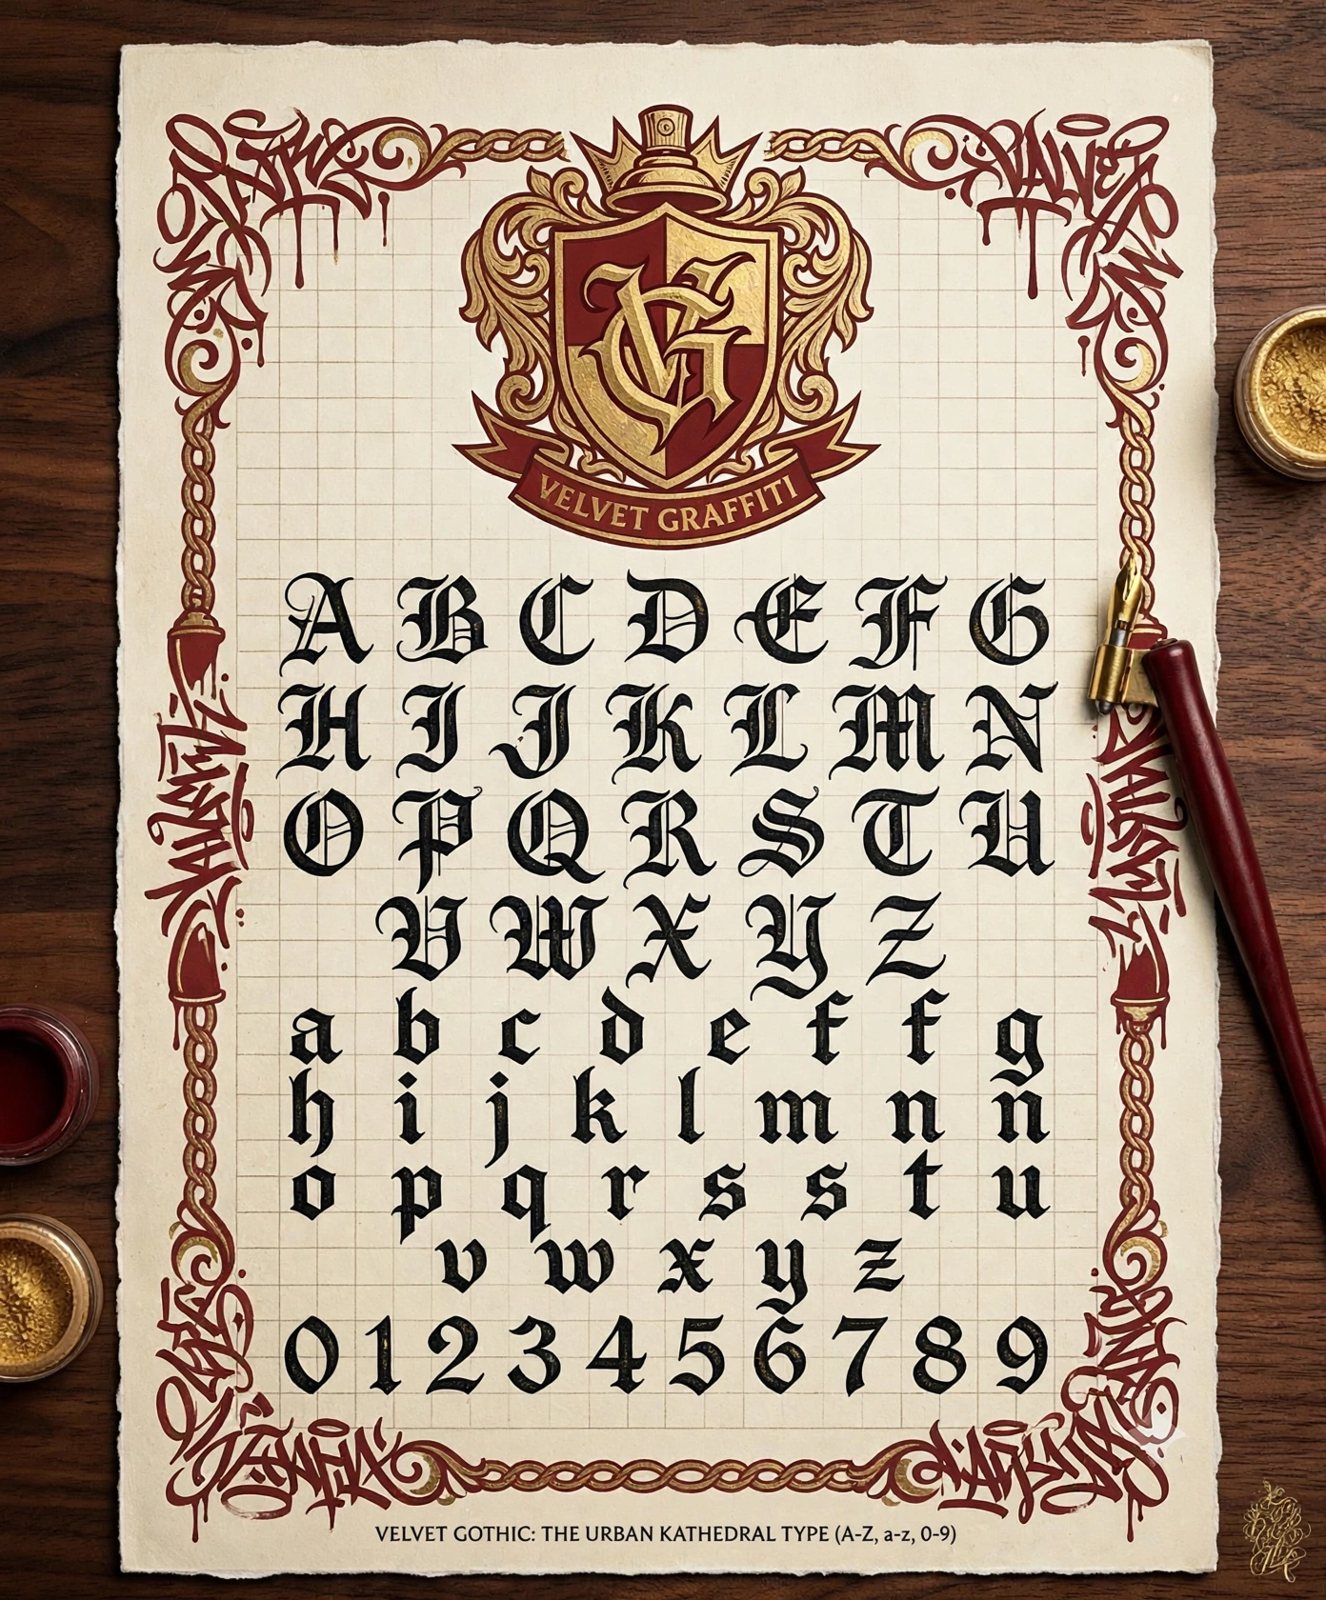 VG
VELVET GRAFFITI
A B C D E F G
H I J K L M N
O P Q R S T U
V W X Y Z
a b c d e f f g
h i j k l m n ñ
o p q r s s t u
v w x y z
0 1 2 3 4 5 6 7 8 9
VELVET GOTHIC: THE URBAN KATHEDRAL TYPE (A-Z, a-z, 0-9)